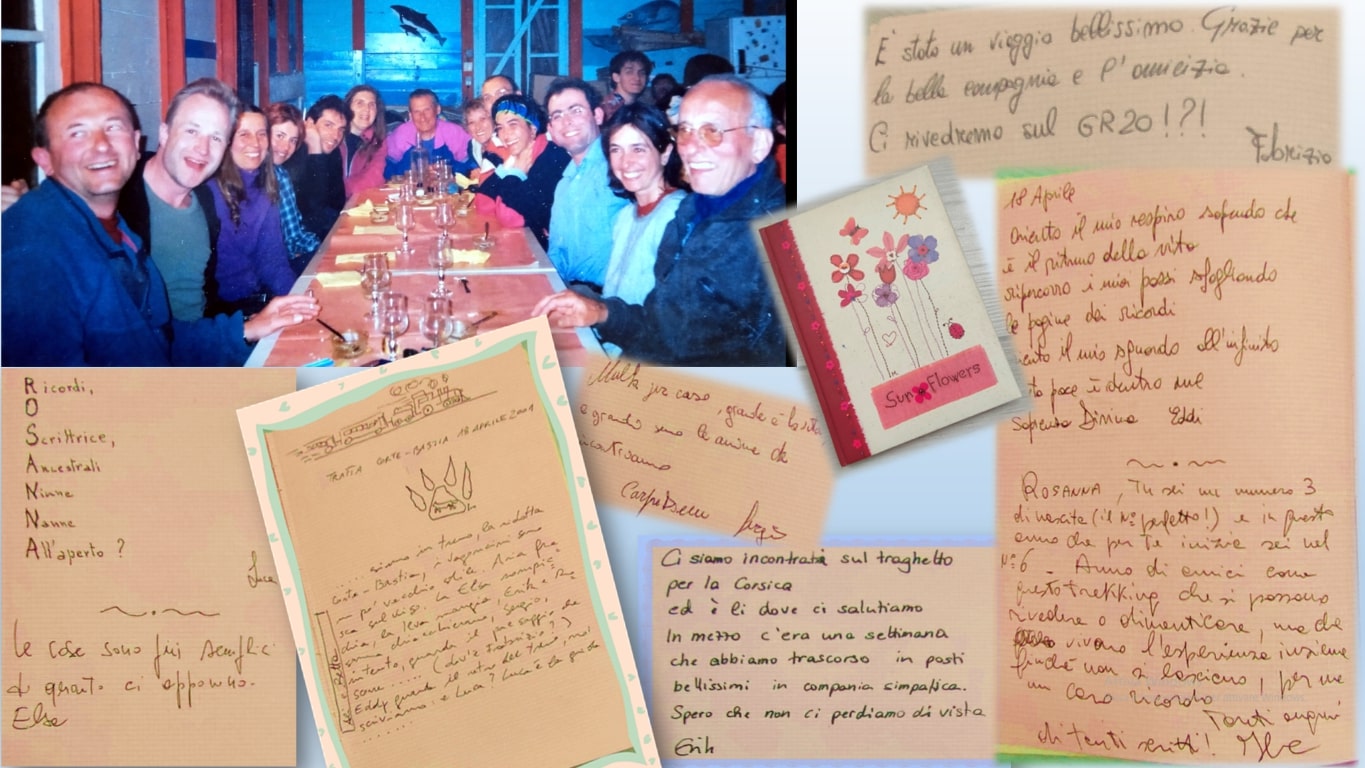 È stato un viaggio bellissimo. Grazie per
la bella compagnia e l'amicizia.
Ci rivedremo sul GR20!?!
Fabrizio
Sun Flowers
18 Aprile
il mio respiro sapendo che
è il ritmo della vita
ripercorro i miei passi sfogliando
le pagine dei ricordi
il mio sguardo all'infinito
pace è dentro me
Sapienza Divina Eddi
ROSANNA, Tu sei un numero 3
di nascita (il N° perfetto!) e in questo
anno che per Te inizia sei nel
N° 6 - Anno di amici come
questo trekking che si possono
rivedere o dimenticare, ma che
vivono l'esperienza insieme
finché non si lasciano, per me
un caro ricordo
Tanti auguri
di tanti scritti!
Ricordi,
O
Scrittrice,
Ancestrali
Ninne
Nanne
All'aperto?
Luca
Le cose sono più semplici
di quanto ci appaiono.
Else
TRATTA CORTE-BASTIA 18 APRILE 2001
.... siamo in treno, la ridotta
Corte-Bastia, i vagoncini sono
un po' vecchio stile. Aria fre
sca sul viso. La Elsa
la Ieva mangia, Erik e
Sergio,
intento, guarda il paesaggio che
scorre ..... (dov'è Fabrizio?)
Eddy guarda il retro del treno, noi
scriviamo: e Luca? Luca è la guida
. . . . . .
Nulla per caso, grande è la vita
e grandi sono le anime che
incontriamo
Carpe Diem Sergio
Ci siamo incontrati sul traghetto
per la Corsica
ed è li dove ci salutiamo
In mezzo c'era una settimana
che abbiamo trascorso in posti
bellissimi in compania simpatica.
Spero che non ci perdiamo di vista
Erik